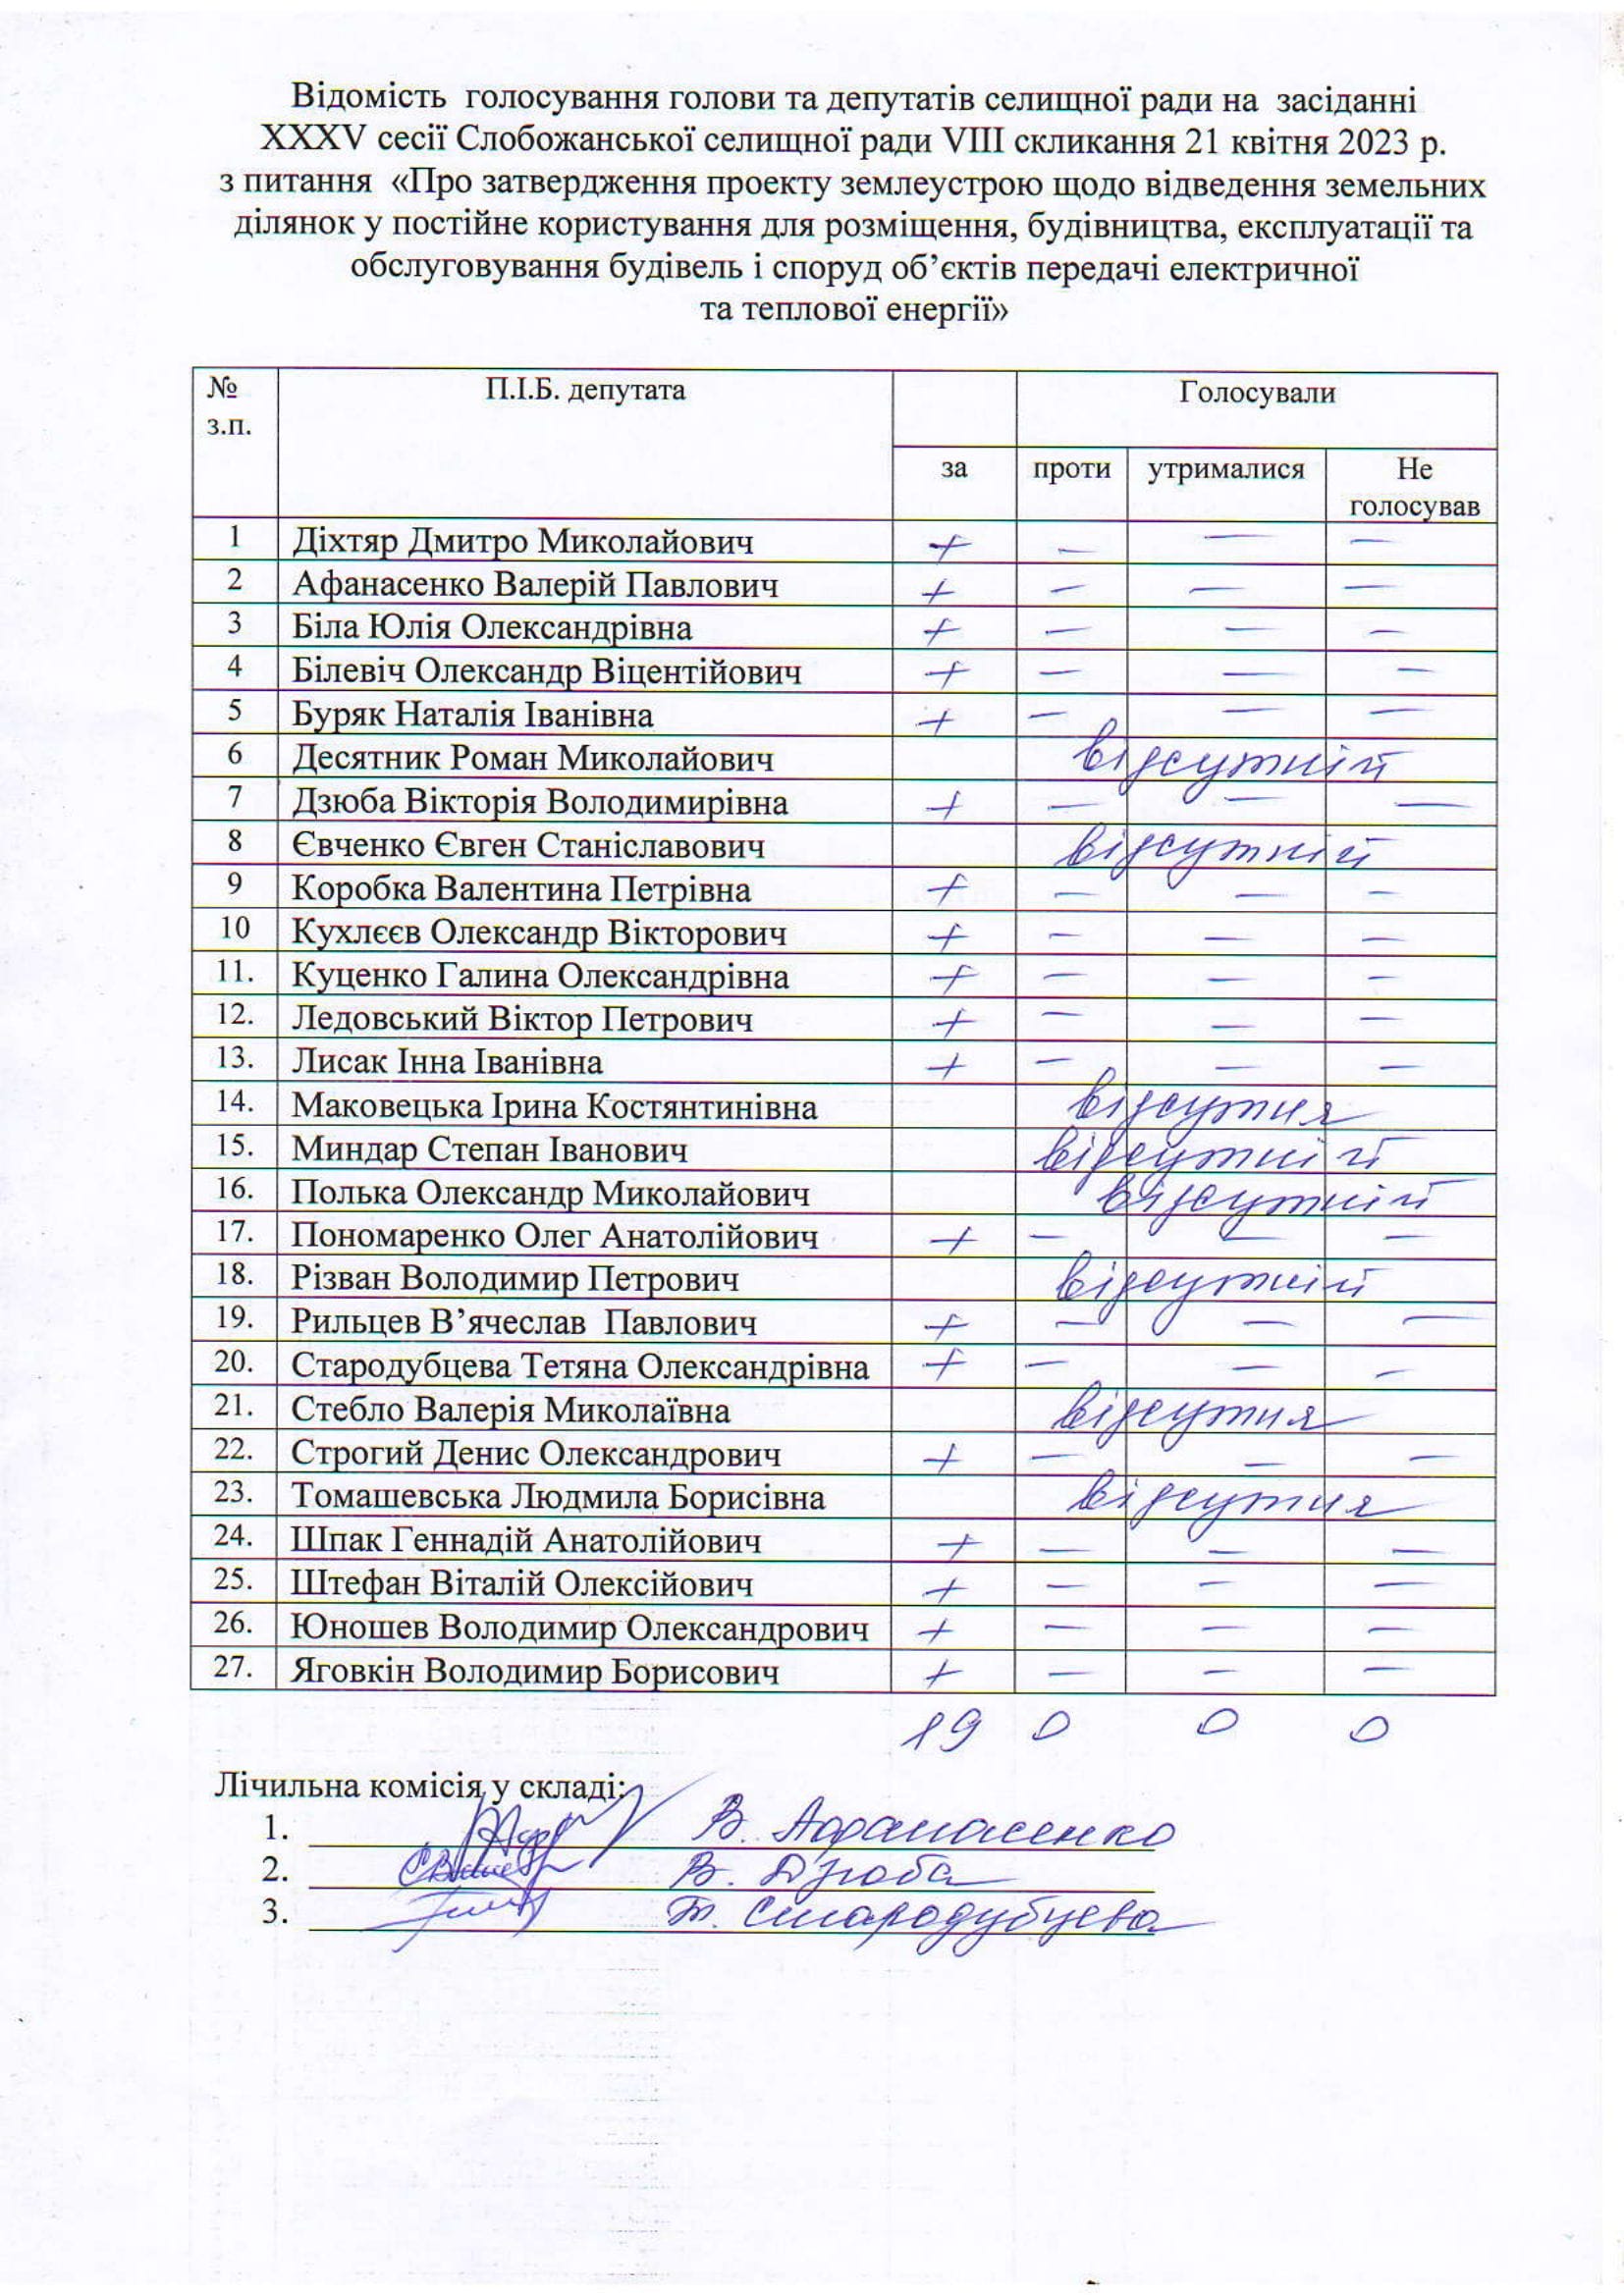 Відомість голосування голови та депутатів селищної ради на засіданні
XXXV сесії Слобожанської селищної ради VIII скликання 21 квітня 2023 р.
з питання «Про затвердження проекту землеустрою щодо відведення земельних
ділянок у постійне користування для розміщення, будівництва, експлуатації та
обслуговування будівель і споруд об’єктів передачі електричної
та теплової енергії»
№ П.І.Б. депутата Голосували
з.п.
за проти утрималися Не
голосував
1 Діхтяр Дмитро Миколайович + — — —
2 Афанасенко Валерій Павлович + — — —
3 Біла Юлія Олександрівна + — — —
4 Білевіч Олександр Віцентійович + — — —
5 Буряк Наталія Іванівна + — — —
6 Десятник Роман Миколайович відсутній
7 Дзюба Вікторія Володимирівна + — — —
8 Євченко Євген Станіславович відсутній
9 Коробка Валентина Петрівна + — — —
10 Кухлєєв Олександр Вікторович + — — —
11. Куценко Галина Олександрівна + — — —
12. Ледовський Віктор Петрович + — — —
13. Лисак Інна Іванівна + — — —
14. Маковецька Ірина Костянтинівна відсутня
15. Миндар Степан Іванович відсутній
16. Полька Олександр Миколайович відсутній
17. Пономаренко Олег Анатолійович + — — —
18. Різван Володимир Петрович відсутній
19. Рильцев В’ячеслав Павлович + — — —
20. Стародубцева Тетяна Олександрівна + — — —
21. Стебло Валерія Миколаївна відсутня
22. Строгий Денис Олександрович + — — —
23. Томашевська Людмила Борисівна відсутня
24. Шпак Геннадій Анатолійович + — — —
25. Штефан Віталій Олексійович + — — —
26. Юношев Володимир Олександрович + — — —
27. Яговкін Володимир Борисович + — — —
19 0 0 0
Лічильна комісія у складі:
1. В. Афанасенко
2. В. Дзюба
3. Т. Стародубцева